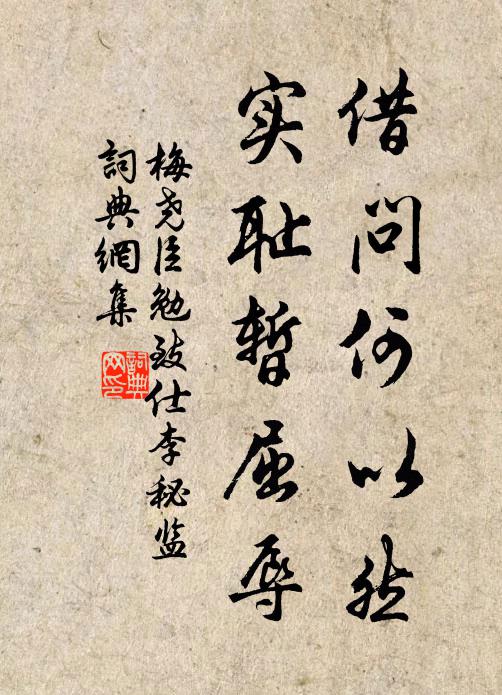 借问何以然
实耻暂屈辱
梅尧臣勉致仕李秘监
词典網集
詞典网印